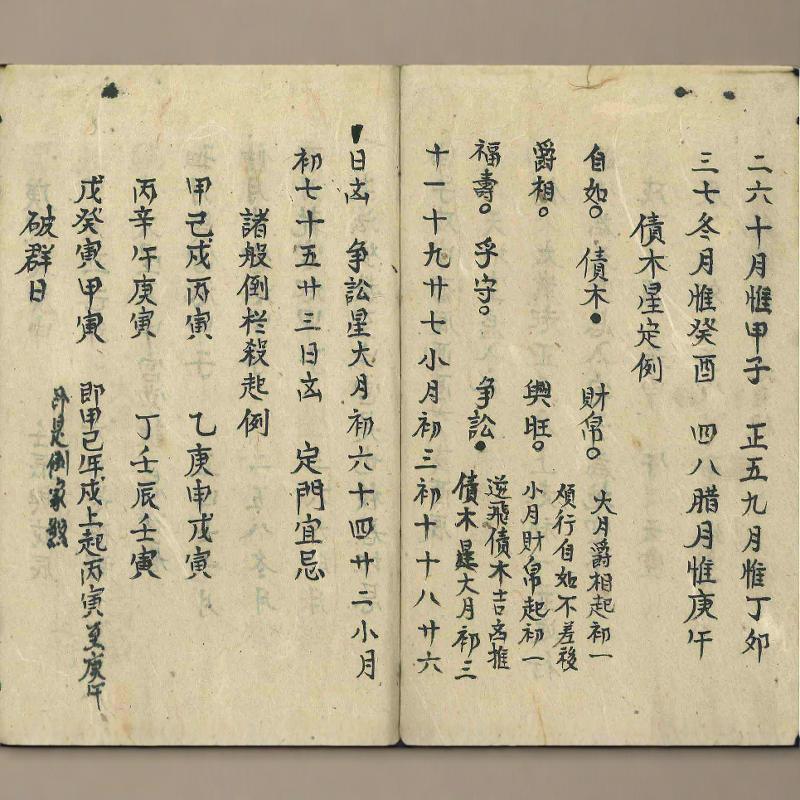 二六十月惟甲子　正五九月惟丁卯
三七冬月惟癸酉　四八腊月惟庚午
債木星定例
自如。債木●財帛。大月爵相起初一
順行自如不差移
爵相。興旺。小月財帛起初一
逆飛債木吉凶推
福壽。孚守。争訟●債木星大月初三
十一十九廿七小月初三初十十八廿六
日凶　争訟星大月初六十四廿二小月
初七十五廿三日凶　定門宜忌
諸般倒栏殺起例
甲己戍丙寅　乙庚申戊寅
丙辛午庚寅　丁壬辰壬寅
戊癸寅甲寅　即甲己年戍上起丙寅至庚午
即是倒家煞
破群日